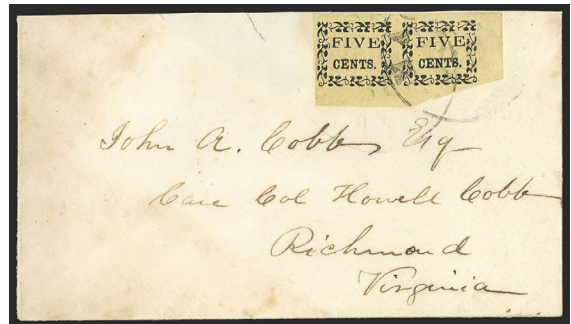 FIVE CENTS.
FIVE CENTS.
John A. Cobb Esq
Care Col Howell Cobb
Richmond
Virginia